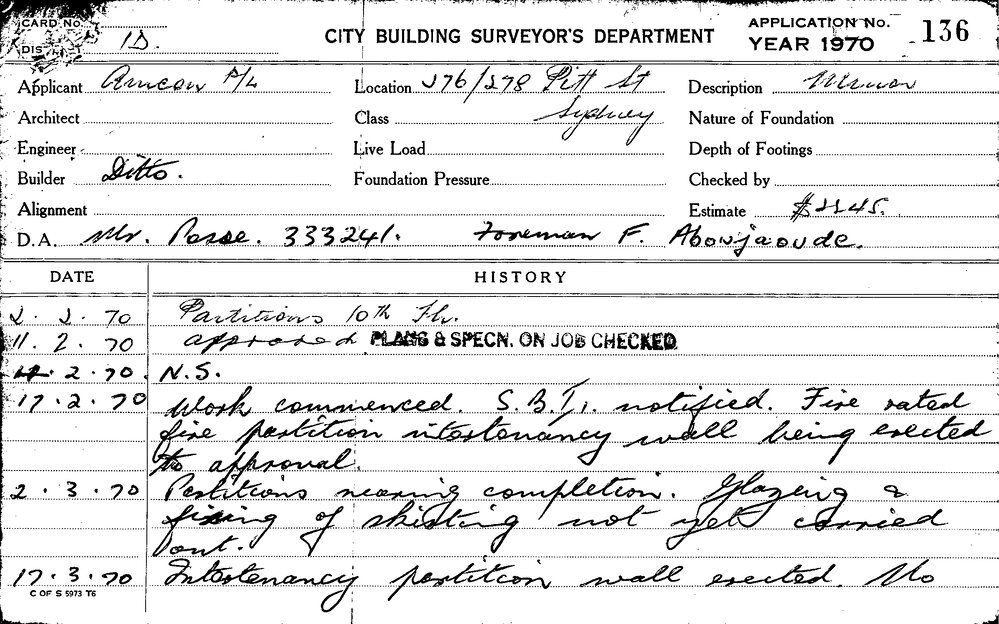 CARD No. APPLICATION No. 136
DIS 1D. CITY BUILDING SURVEYOR'S DEPARTMENT YEAR 1970
Applicant Armcon P/L Location 276/278 Pitt St Description Minor
Architect Class Sydney Nature of Foundation
Engineer Live Load Depth of Footings
Builder Ditto. Foundation Pressure Checked by
Alignment Estimate $2245.
D.A. Mr. 333241. Foreman F. Aboujaoude.
DATE HISTORY
2. 2. 70 Partitions 10th Flr.
11. 2. 70 approved PLANS & SPECN. ON JOB CHECKED
2.70. N.S.
17.2.70 Work commenced. S.B.I. notified. Fire rated
fire partition intertenancy wall being erected
to approval.
2.3.70 Partitions nearing completion. Glazeing &
fixing of skirting not yet carried
out.
17.3.70 Intertenancy partition wall erected. No
C OF S 5973 T6